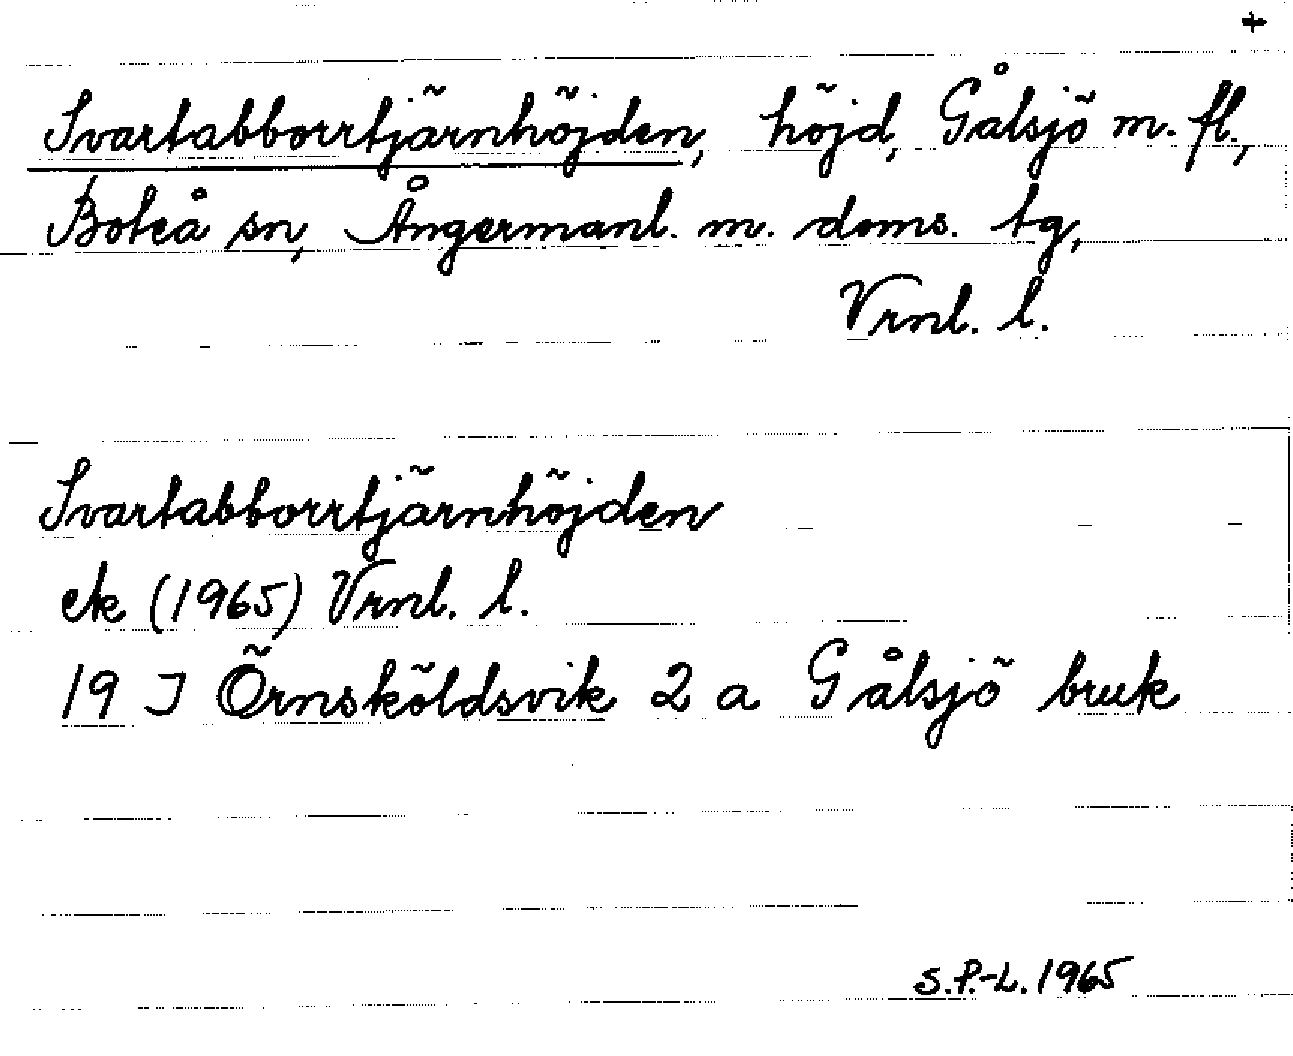 +
Svartabborrtjärnhöjden, höjd, Gålsjö m. fl.,
Boteå sn, Ångermanl. m. doms. tg,
Vrnl. l.
Svartabborrtjärnhöjden
ek (1965) Vrnl. l.
19 J Örnsköldsvik 2 a Gålsjö bruk
S.P.-L. 1965